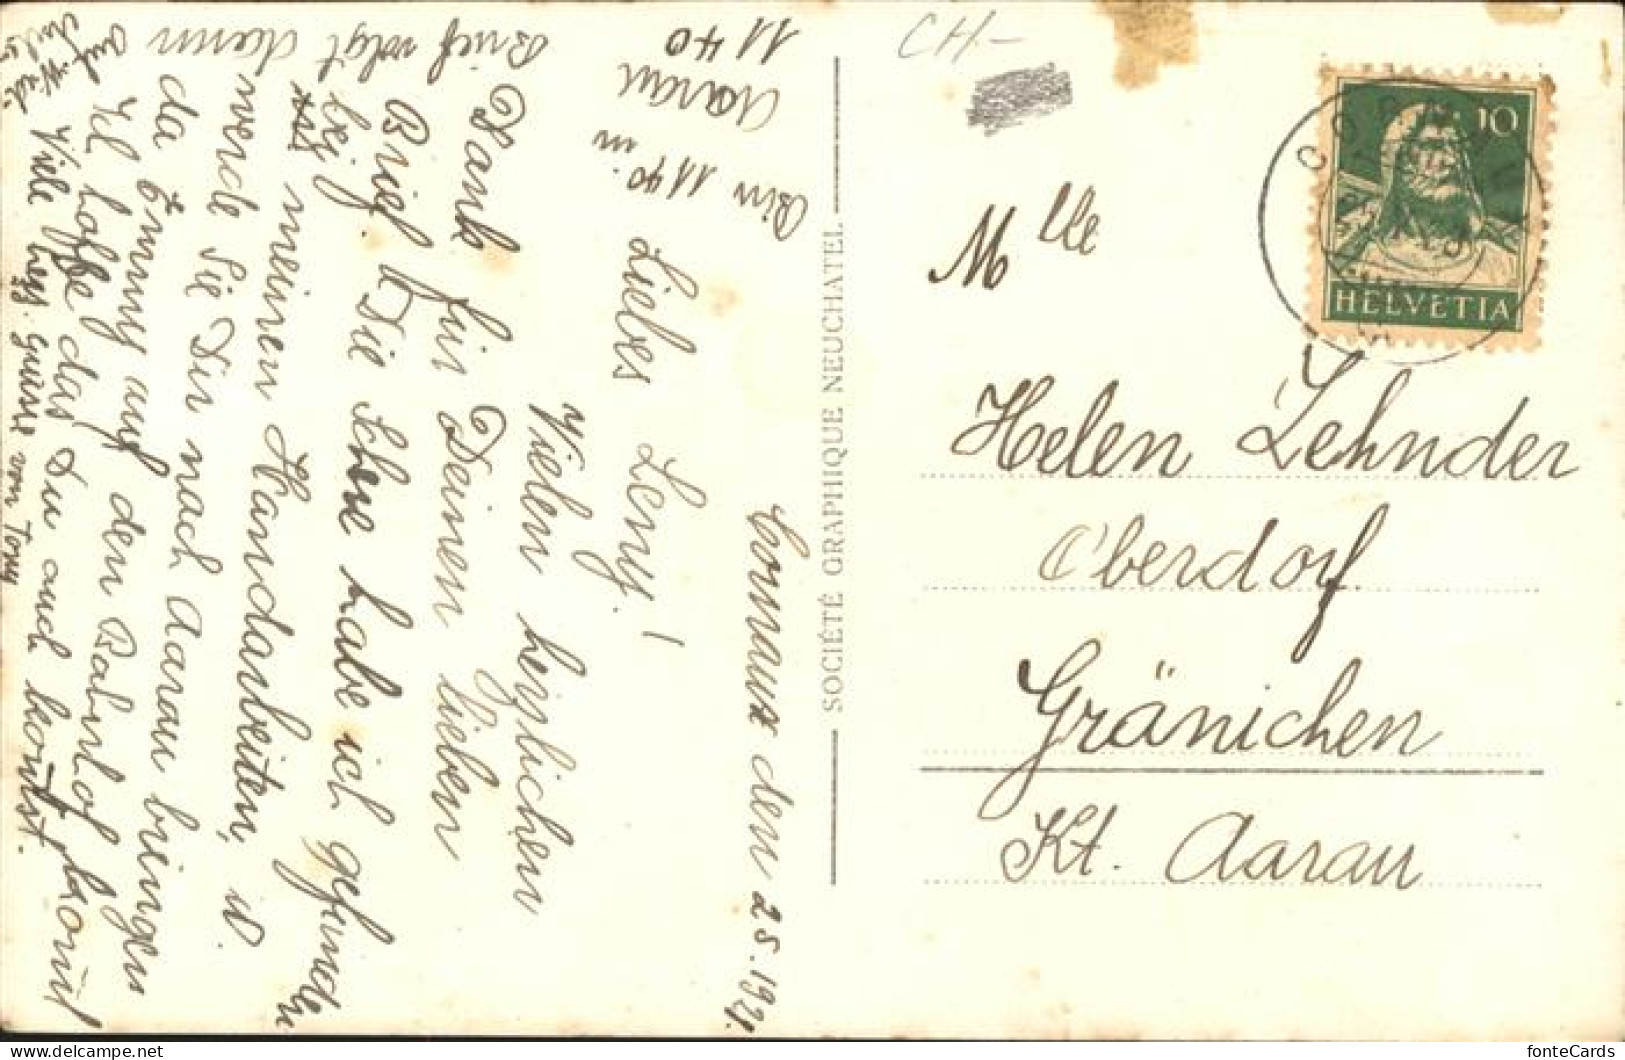 Cornaux den 25.1921.
Liebes Leny!
Vielen herzlichen
Dank für Deinen lieben
Brief. Die Uhr habe ich gefunden
bei meinen Handarbeiten, u.
werde Sie Dir nach Aarau bringen
da Emmy auf den Bahnhof kommt
Ich hoffe das Du auch kommst.
Viele herz. Grüsse von Tony
Auf Wied-
Brief volgt dann
Bin 1140 in
Aarau
1140
SOCIÉTÉ GRAPHIQUE NEUCHATEL
CH-
10
HELVETIA
CORNAUX
Mlle
Helen Zehnder
Oberdorf
Gränichen
Kt. Aarau
fonteCards